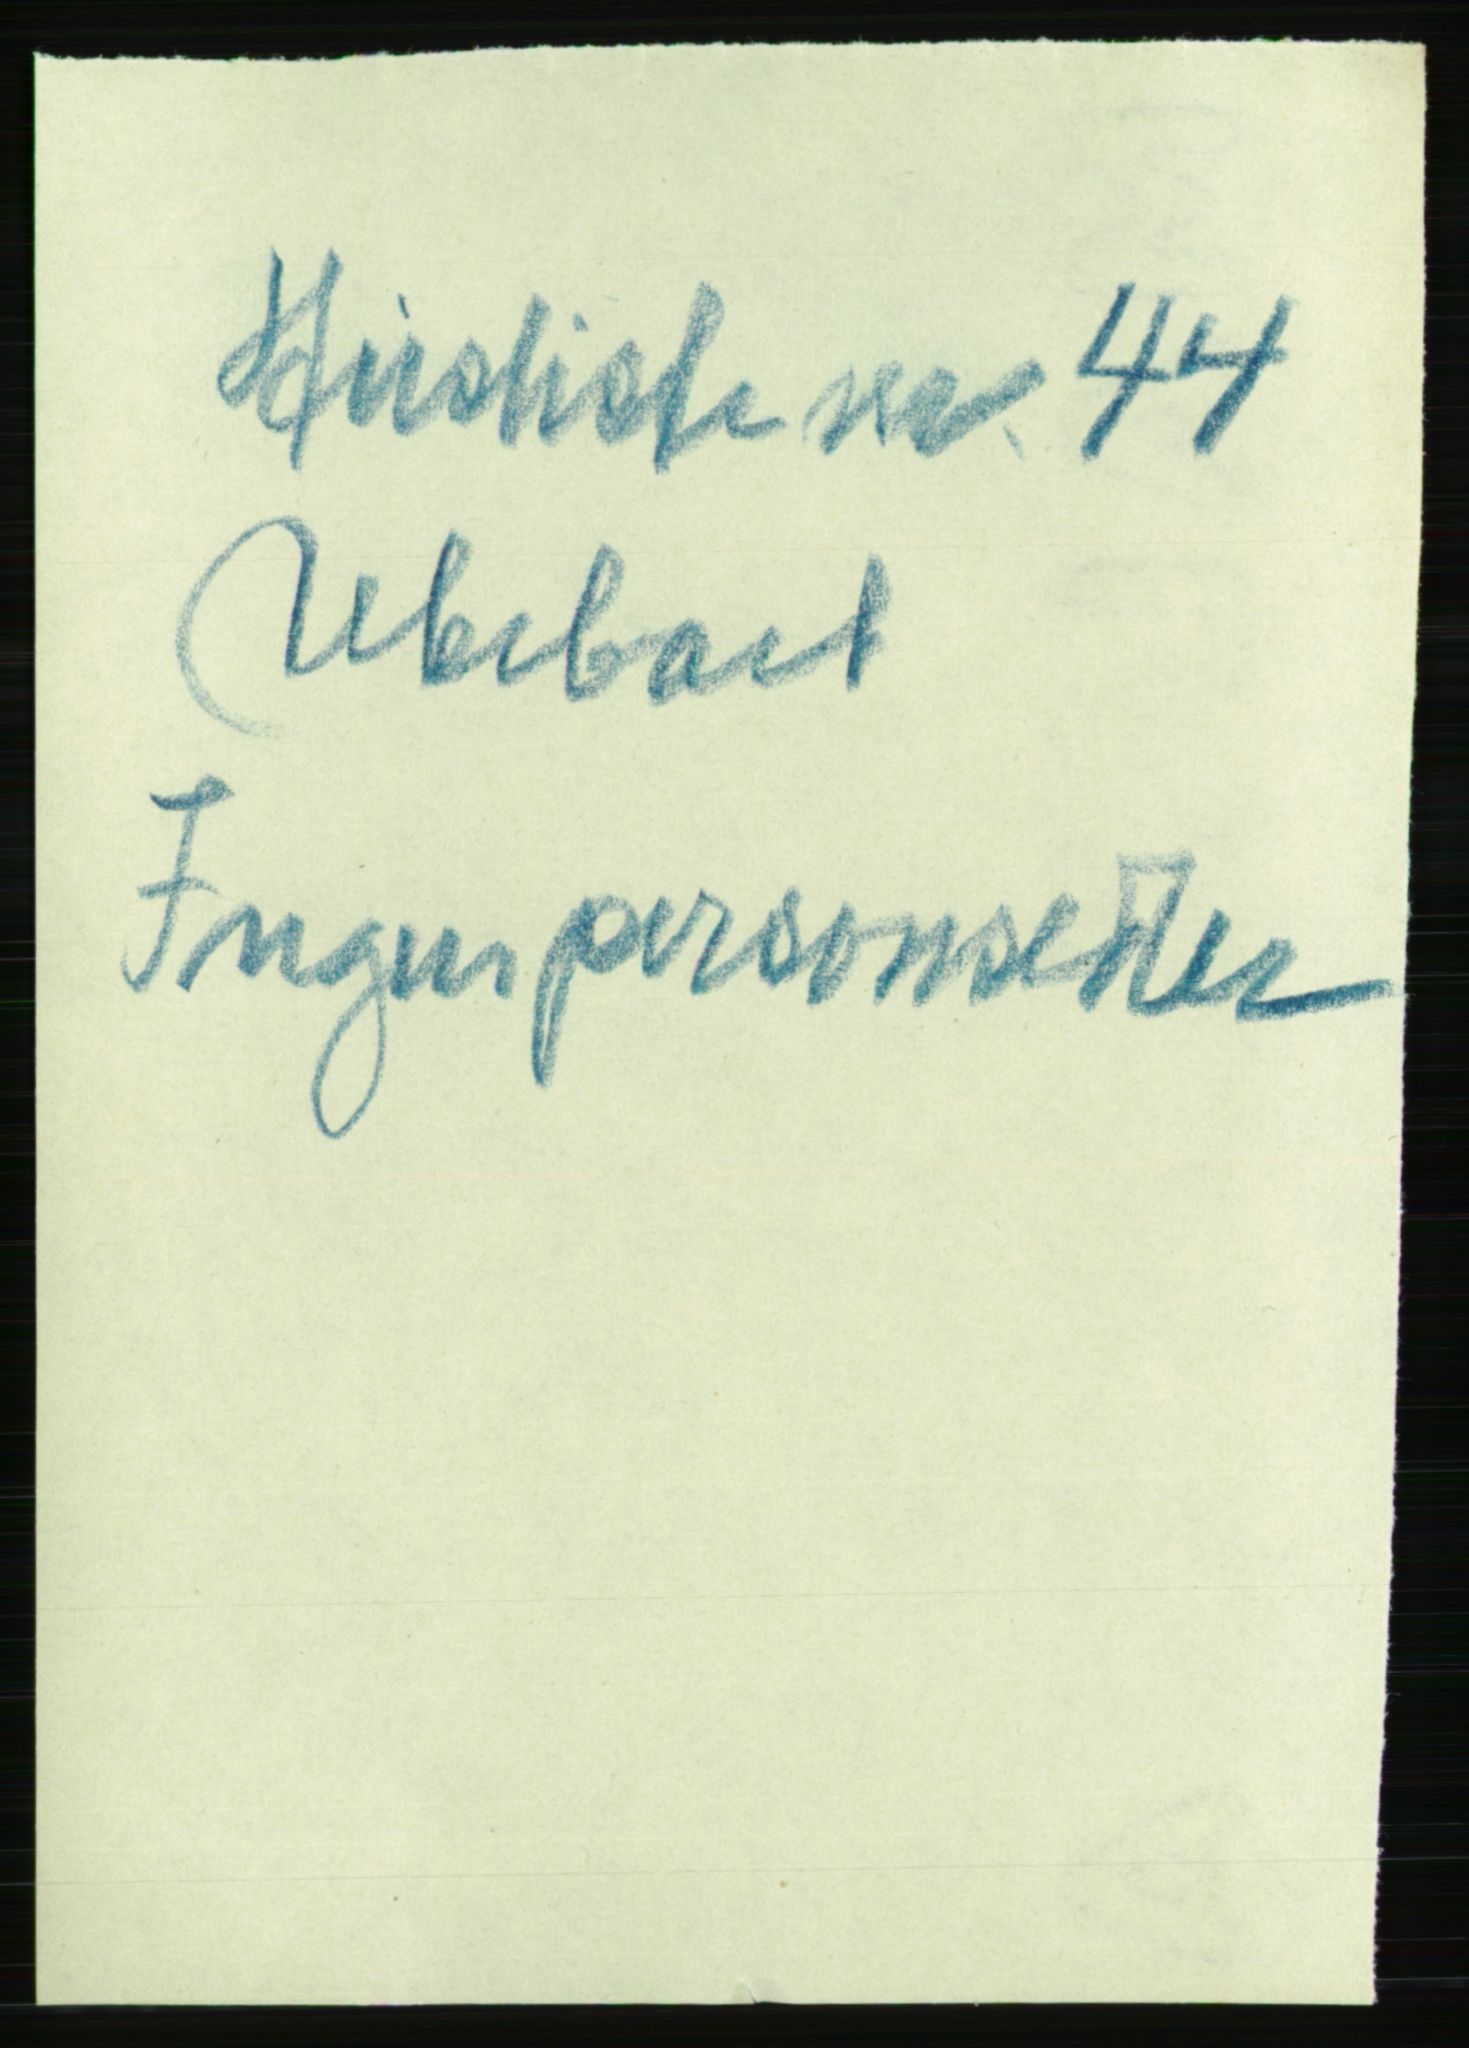 Husliste nr. 44
Ubeboet
Ingen personsedler